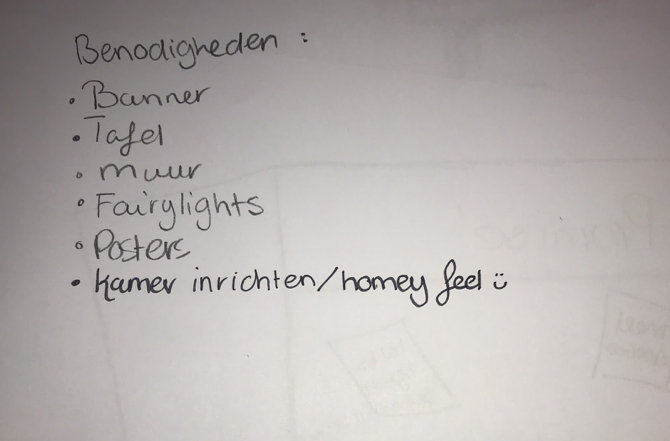 Benodigheden :
• Banner
• Tafel
• muur
• Fairylights
• Posters
• Kamer inrichten/homey feel ü